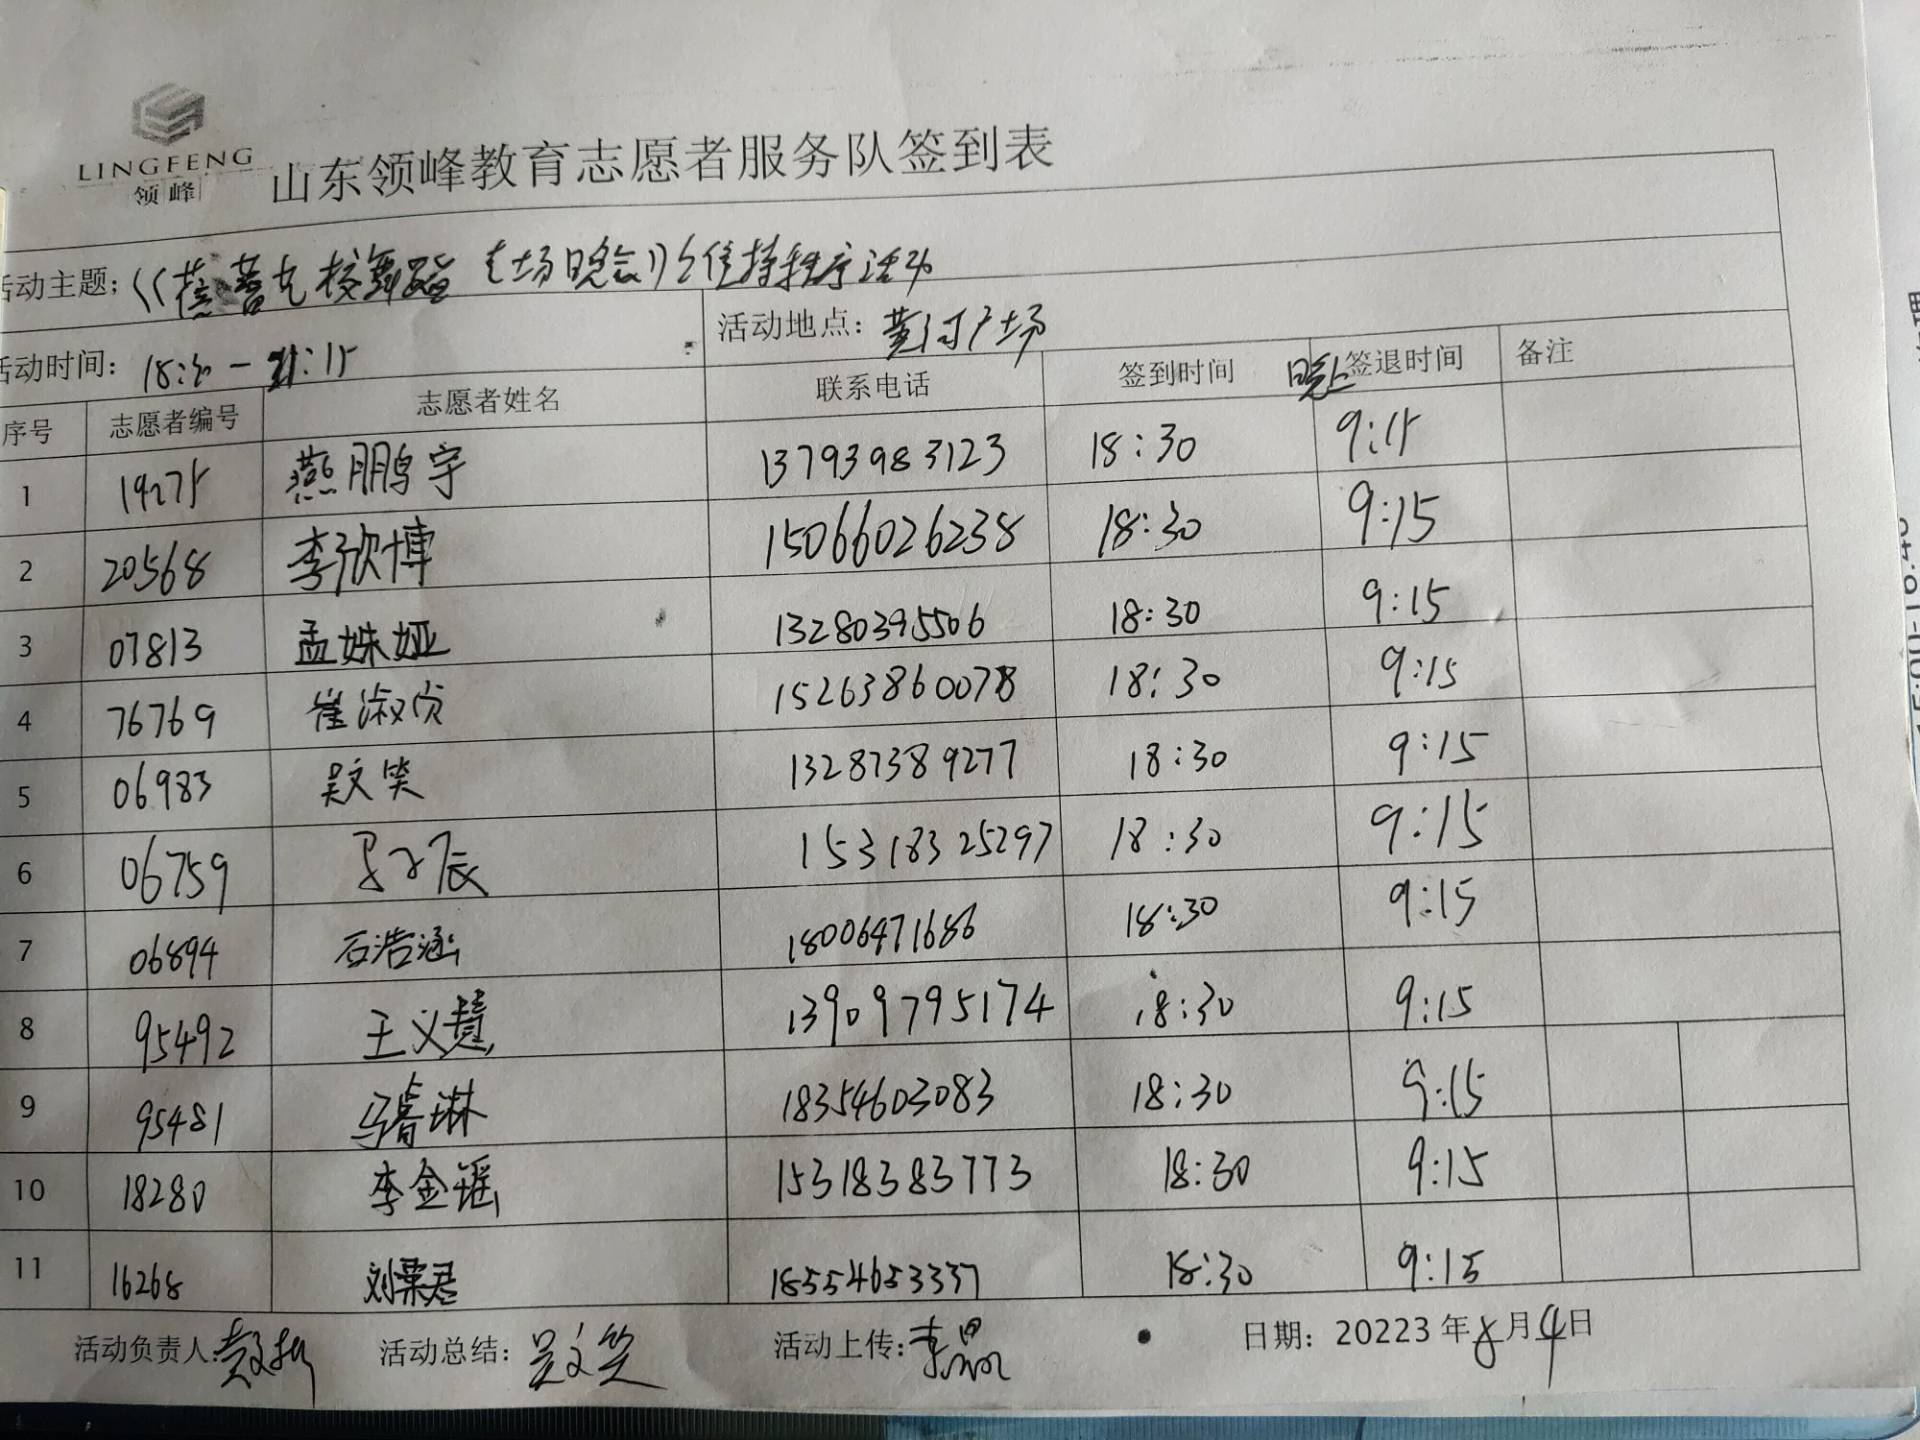 LINGFENG
领峰
山东领峰教育志愿者服务队签到表
活动主题；《 舞蹈 专场晚会》 维持秩序活动
活动时间： 18:30 — 21:15 活动地点： 黄河广场
序号 志愿者编号 志愿者姓名 联系电话 签到时间 晚上 签退时间 备注
1 19275 燕鹏宇 13793983123 18:30 9:15
2 20568 李欣博 15066026238 18:30 9:15
3 07813 孟姝娅 13280395506 18:30 9:15
4 76769 崔淑贞 15263860078 18:30 9:15
5 06983 吴文笑 13287389277 18:30 9:15
6 06759 15318325297 18:30 9:15
7 06894 石浩涵 18006471686 18:30 9:15
8 95492 王义慧 13909795174 18:30 9:15
9 95481 马睿琳 18354603083 18:30 9:15
10 18280 李金瑶 15318383773 18:30 9:15
11 16268 刘荣君 18554653337 18:30 9:15
活动负责人： 活动总结： 吴文笑 活动上传： 李晶 日期：20223年8月4日
5:00-18:40
理